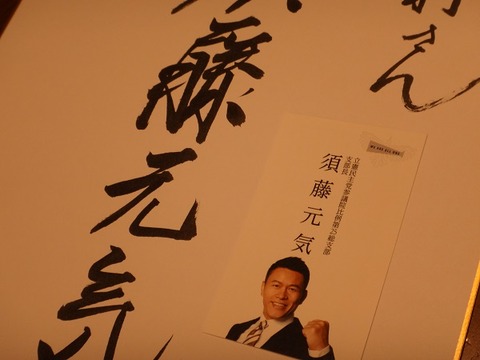 さん
須藤元気
立憲民主党参議院比例第25総支部
支部長
須藤元気